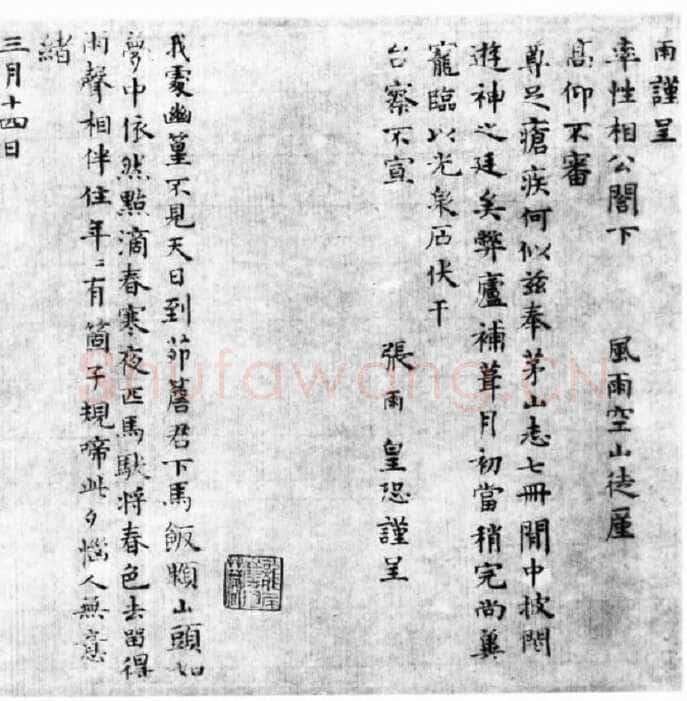 雨謹呈
率性相公閣下　風雨空山徒廑
高仰不審
尊足瘡疾何似茲奉茅山志七冊閒中披閱
遊神之廷矣弊廬補葺月初當稍完尚冀
寵臨以光泉石伏干
台察不宣
張雨皇恐謹呈
我處幽篁不見天日到茆簷君下馬飯顆山頭如
夢中依然點滴春寒夜匹馬馱將春色去留得
雨聲相伴住年〻有箇子規啼此夕惱人無意
緒
三月十四日
Shufawang.CN